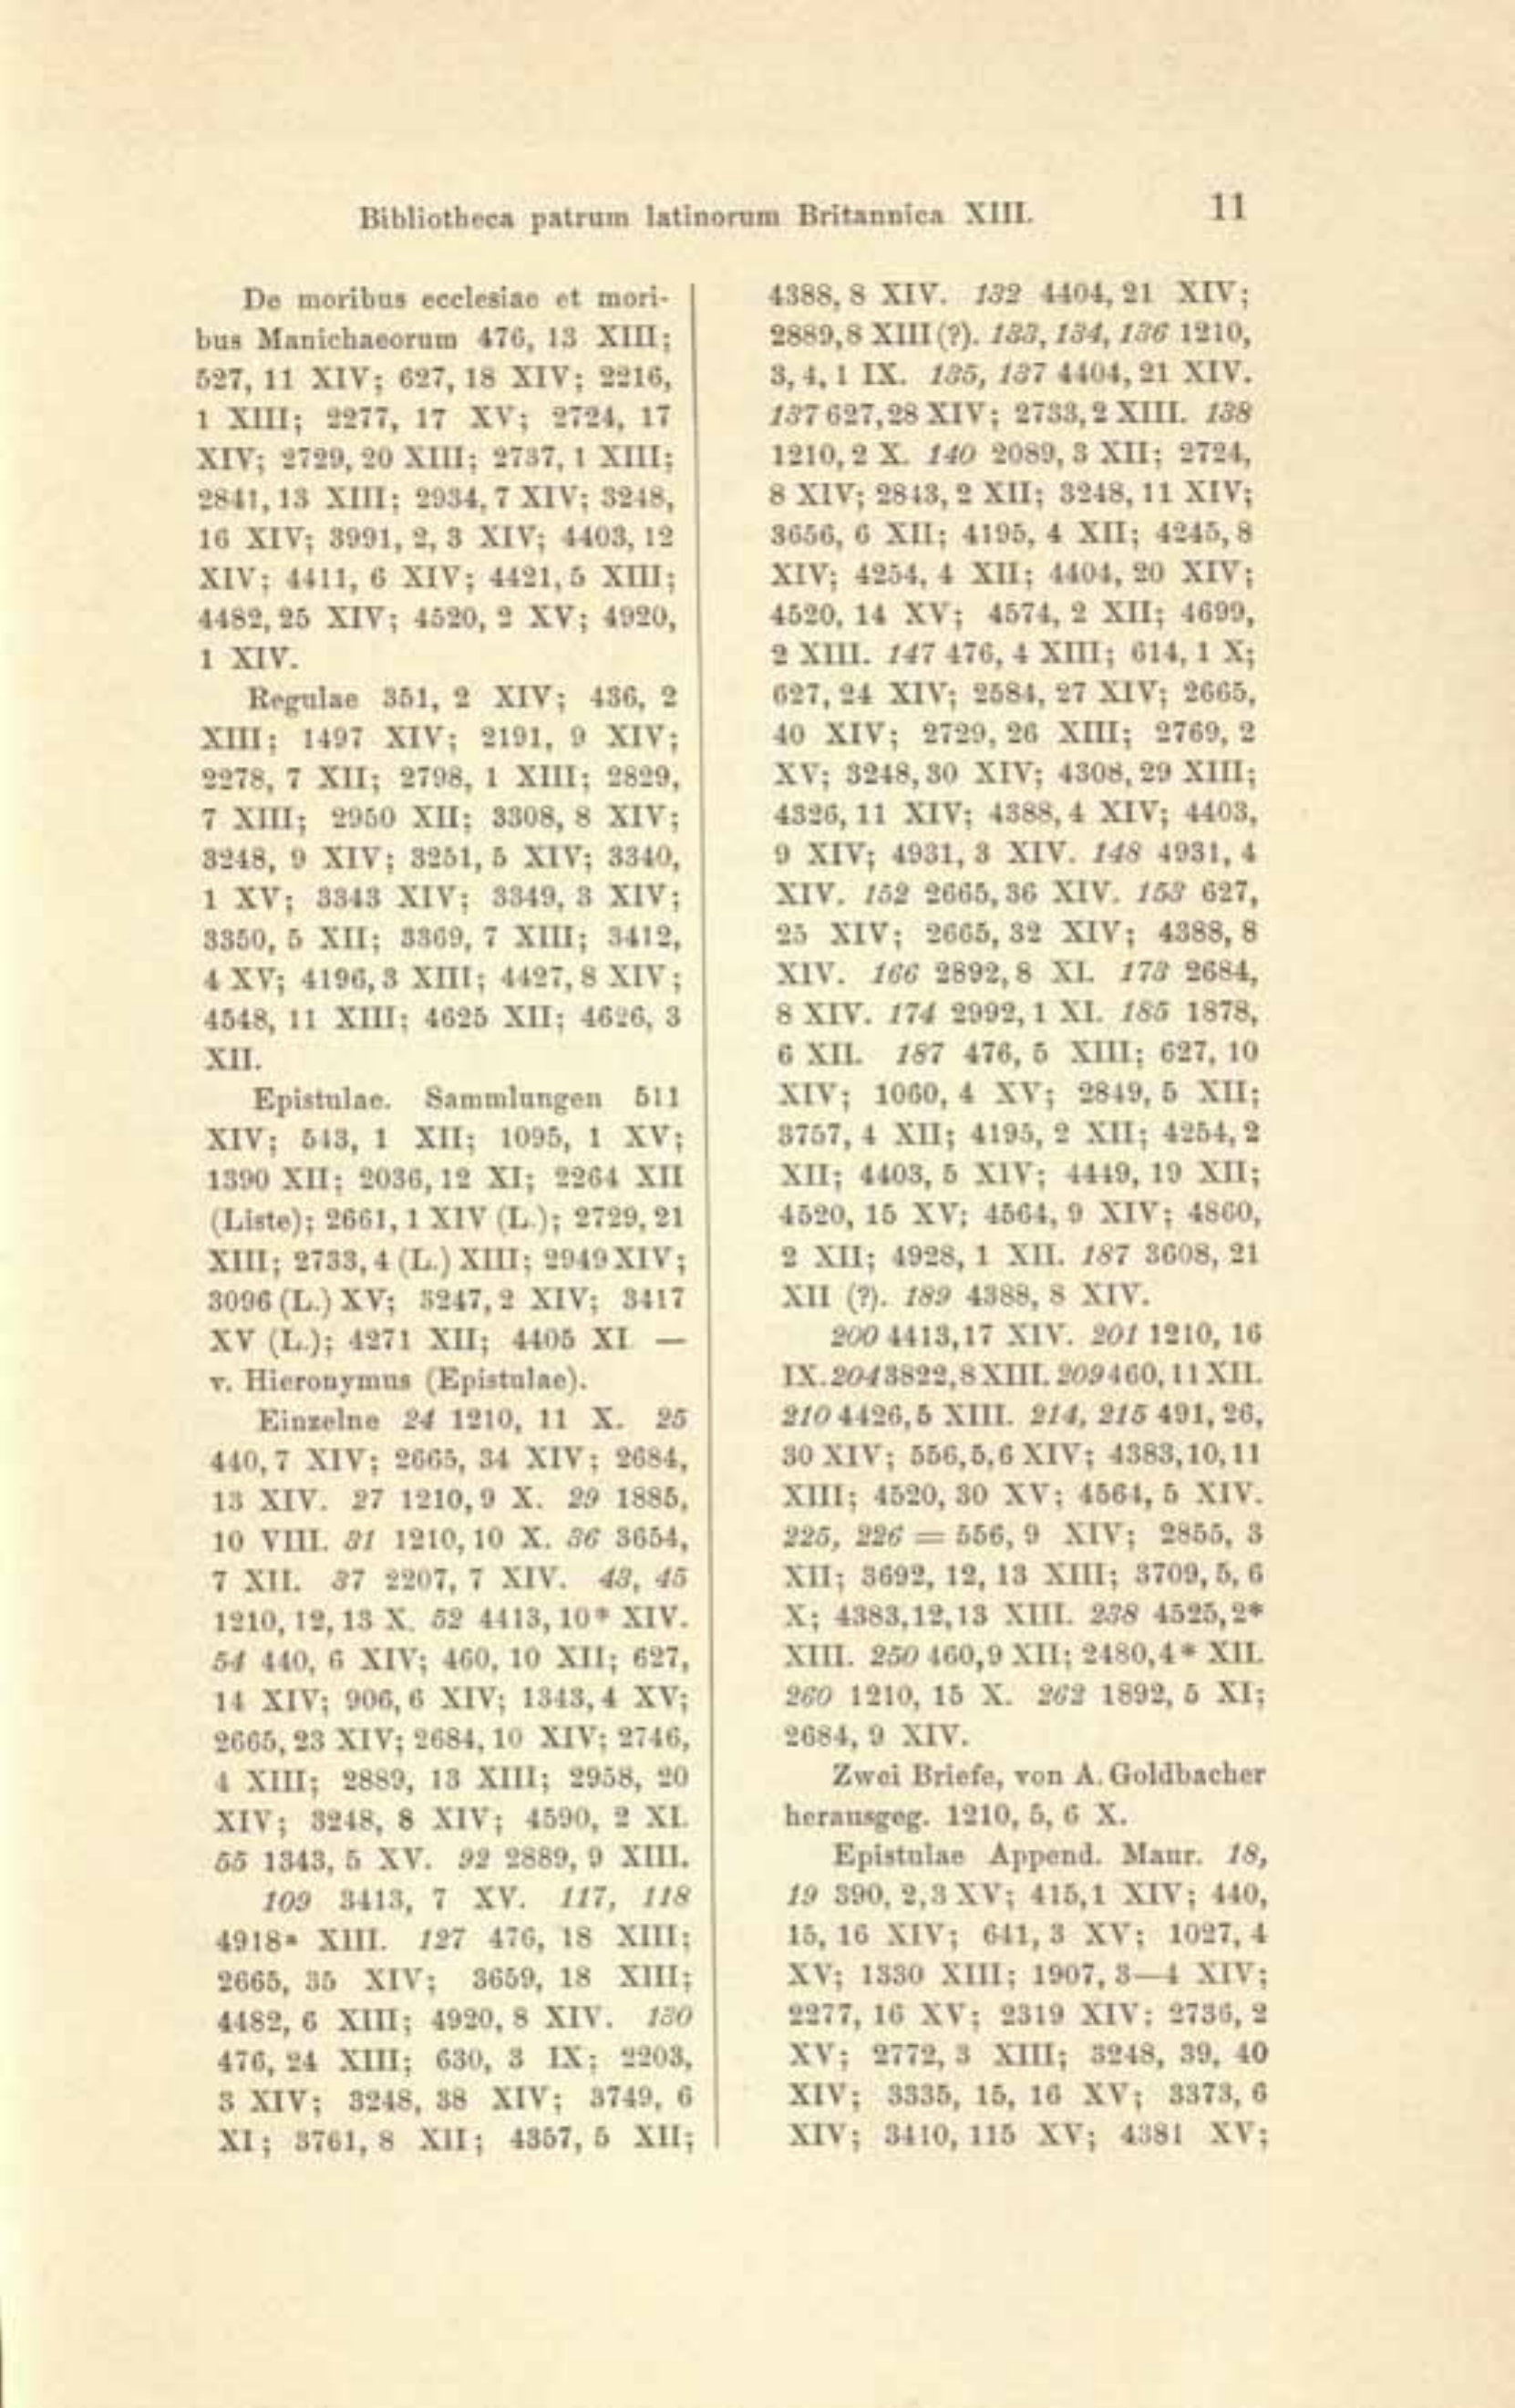 Bibliotheca patrum latinorum Britannica XIII. 11
De moribus ecclesiae et mori-
bus Manichaeorum 476, 13 XIII;
527, 11 XIV; 627, 18 XIV; 2216,
1 XIII; 2277, 17 XV; 2724, 17
XIV; 2729, 20 XIII; 2737, 1 XIII;
2841, 13 XIII; 2934, 7 XIV; 3248,
16 XIV; 3991, 2, 3 XIV; 4403, 12
XIV; 4411, 6 XIV; 4421, 5 XIII;
4482, 25 XIV; 4520, 2 XV; 4920,
1 XIV.
Regulae 351, 2 XIV; 436, 2
XIII; 1497 XIV; 2191, 9 XIV;
2278, 7 XII; 2798, 1 XIII; 2829,
7 XIII; 2950 XII; 3308, 8 XIV;
3248, 9 XIV; 3251, 5 XIV; 3340,
1 XV; 3343 XIV; 3349, 3 XIV;
3350, 5 XII; 3369, 7 XIII; 3412,
4 XV; 4196, 3 XIII; 4427, 8 XIV;
4548, 11 XIII; 4625 XII; 4626, 3
XII.
Epistulae. Sammlungen 511
XIV; 543, 1 XII; 1095, 1 XV;
1390 XII; 2036, 12 XI; 2264 XII
(Liste); 2661, 1 XIV (L.); 2729, 21
XIII; 2733, 4 (L.) XIII; 2949 XIV;
3096 (L.) XV; 3247, 2 XIV; 3417
XV (L.); 4271 XII; 4405 XI —
v. Hieronymus (Epistulae).
Einzelne 24 1210, 11 X. 25
440, 7 XIV; 2665, 34 XIV; 2684,
13 XIV. 27 1210, 9 X. 29 1885,
10 VIII. 31 1210, 10 X. 36 3654,
7 XII. 37 2207, 7 XIV. 43, 45
1210, 12, 13 X. 52 4413, 10* XIV.
54 440, 6 XIV; 460, 10 XII; 627,
14 XIV; 906, 6 XIV; 1343, 4 XV;
2665, 23 XIV; 2684, 10 XIV; 2746,
4 XIII; 2889, 13 XIII; 2958, 20
XIV; 3248, 8 XIV; 4590, 2 XI.
55 1343, 5 XV. 92 2889, 9 XIII.
109 3413, 7 XV. 117, 118
4918* XIII. 127 476, 18 XIII;
2665, 35 XIV; 3659, 18 XIII;
4482, 6 XIII; 4920, 8 XIV. 130
476, 24 XIII; 630, 3 IX; 2203,
3 XIV; 3248, 38 XIV; 3749, 6
XI; 3761, 8 XII; 4357, 5 XII;
4388, 8 XIV. 132 4404, 21 XIV;
2889, 8 XIII (?). 133, 134, 136 1210,
3, 4, 1 IX. 135, 137 4404, 21 XIV.
137 627, 28 XIV; 2733, 2 XIII. 138
1210, 2 X. 140 2089, 3 XII; 2724,
8 XIV; 2843, 2 XII; 3248, 11 XIV;
3656, 6 XII; 4195, 4 XII; 4245, 8
XIV; 4254, 4 XII; 4404, 20 XIV;
4520, 14 XV; 4574, 2 XII; 4699,
2 XIII. 147 476, 4 XIII; 614, 1 X;
627, 24 XIV; 2584, 27 XIV; 2665,
40 XIV; 2729, 26 XIII; 2769, 2
XV; 3248, 30 XIV; 4308, 29 XIII;
4326, 11 XIV; 4388, 4 XIV; 4403,
9 XIV; 4931, 3 XIV. 148 4931, 4
XIV. 152 2665, 36 XIV. 153 627,
25 XIV; 2665, 32 XIV; 4388, 8
XIV. 166 2892, 8 XI. 173 2684,
8 XIV. 174 2992, 1 XI. 185 1878,
6 XII. 187 476, 5 XIII; 627, 10
XIV; 1060, 4 XV; 2849, 5 XII;
3757, 4 XII; 4195, 2 XII; 4254, 2
XII; 4403, 5 XIV; 4449, 19 XII;
4520, 15 XV; 4564, 9 XIV; 4860,
2 XII; 4928, 1 XII. 187 3608, 21
XII (?). 189 4388, 8 XIV.
200 4413, 17 XIV. 201 1210, 16
IX. 204 3822, 8 XIII. 209 460, 11 XII.
210 4426, 5 XIII. 214, 215 491, 26,
30 XIV; 556, 5, 6 XIV; 4383, 10, 11
XIII; 4520, 30 XV; 4564, 5 XIV.
225, 226 = 556, 9 XIV; 2855, 3
XII; 3692, 12, 13 XIII; 3709, 5, 6
X; 4383, 12, 13 XIII. 238 4525, 2*
XIII. 250 460, 9 XII; 2480, 4* XII.
260 1210, 15 X. 262 1892, 5 XI;
2684, 9 XIV.
Zwei Briefe, von A. Goldbacher
herausgeg. 1210, 5, 6 X.
Epistulae Append. Maur. 18,
19 390, 2, 3 XV; 415, 1 XIV; 440,
15, 16 XIV; 641, 3 XV; 1027, 4
XV; 1330 XIII; 1907, 3—4 XIV;
2277, 16 XV; 2319 XIV; 2736, 2
XV; 2772, 3 XIII; 3248, 39, 40
XIV; 3335, 15, 16 XV; 3373, 6
XIV; 3410, 115 XV; 4381 XV;